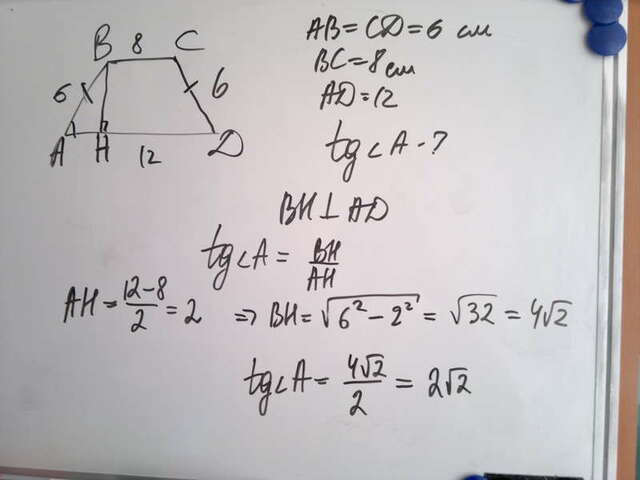 B 8 C
6 6
A H 12 D
AB=CD=6 см
BC=8 см
AD=12
tg∠A-?
BH⊥AD
tg∠A = BH/AH
AH = (12-8)/2 = 2 ⇒ BH = √(6²-2²) = √32 = 4√2
tg∠A = 4√2/2 = 2√2